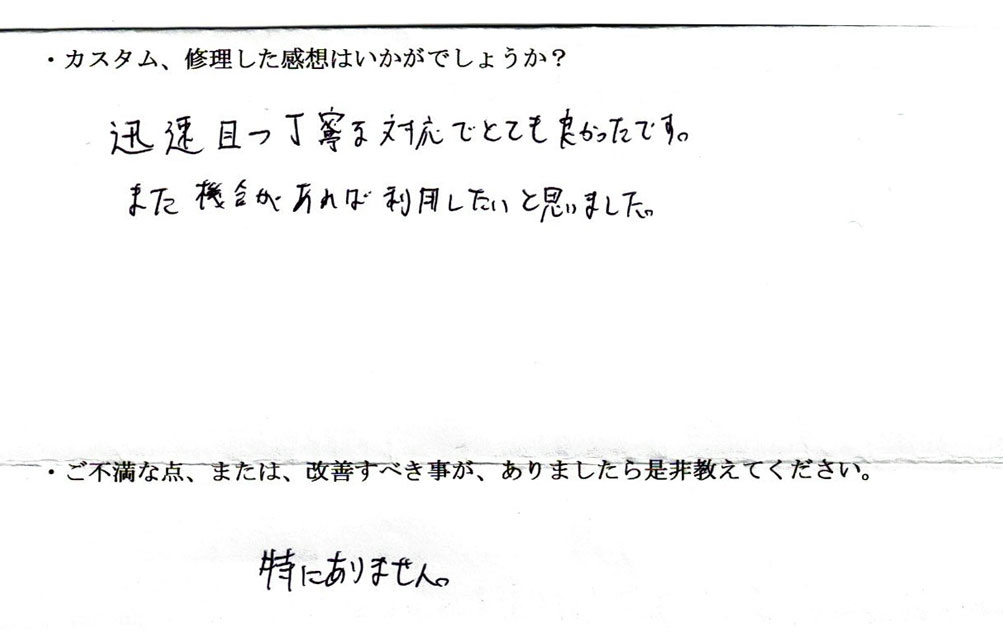 ・カスタム、修理した感想はいかがでしょうか？
迅速且つ丁寧な対応でとても良かったです。
また機会があれば利用したいと思いました。
・ご不満な点、または、改善すべき事が、ありましたら是非教えてください。
特にありません。